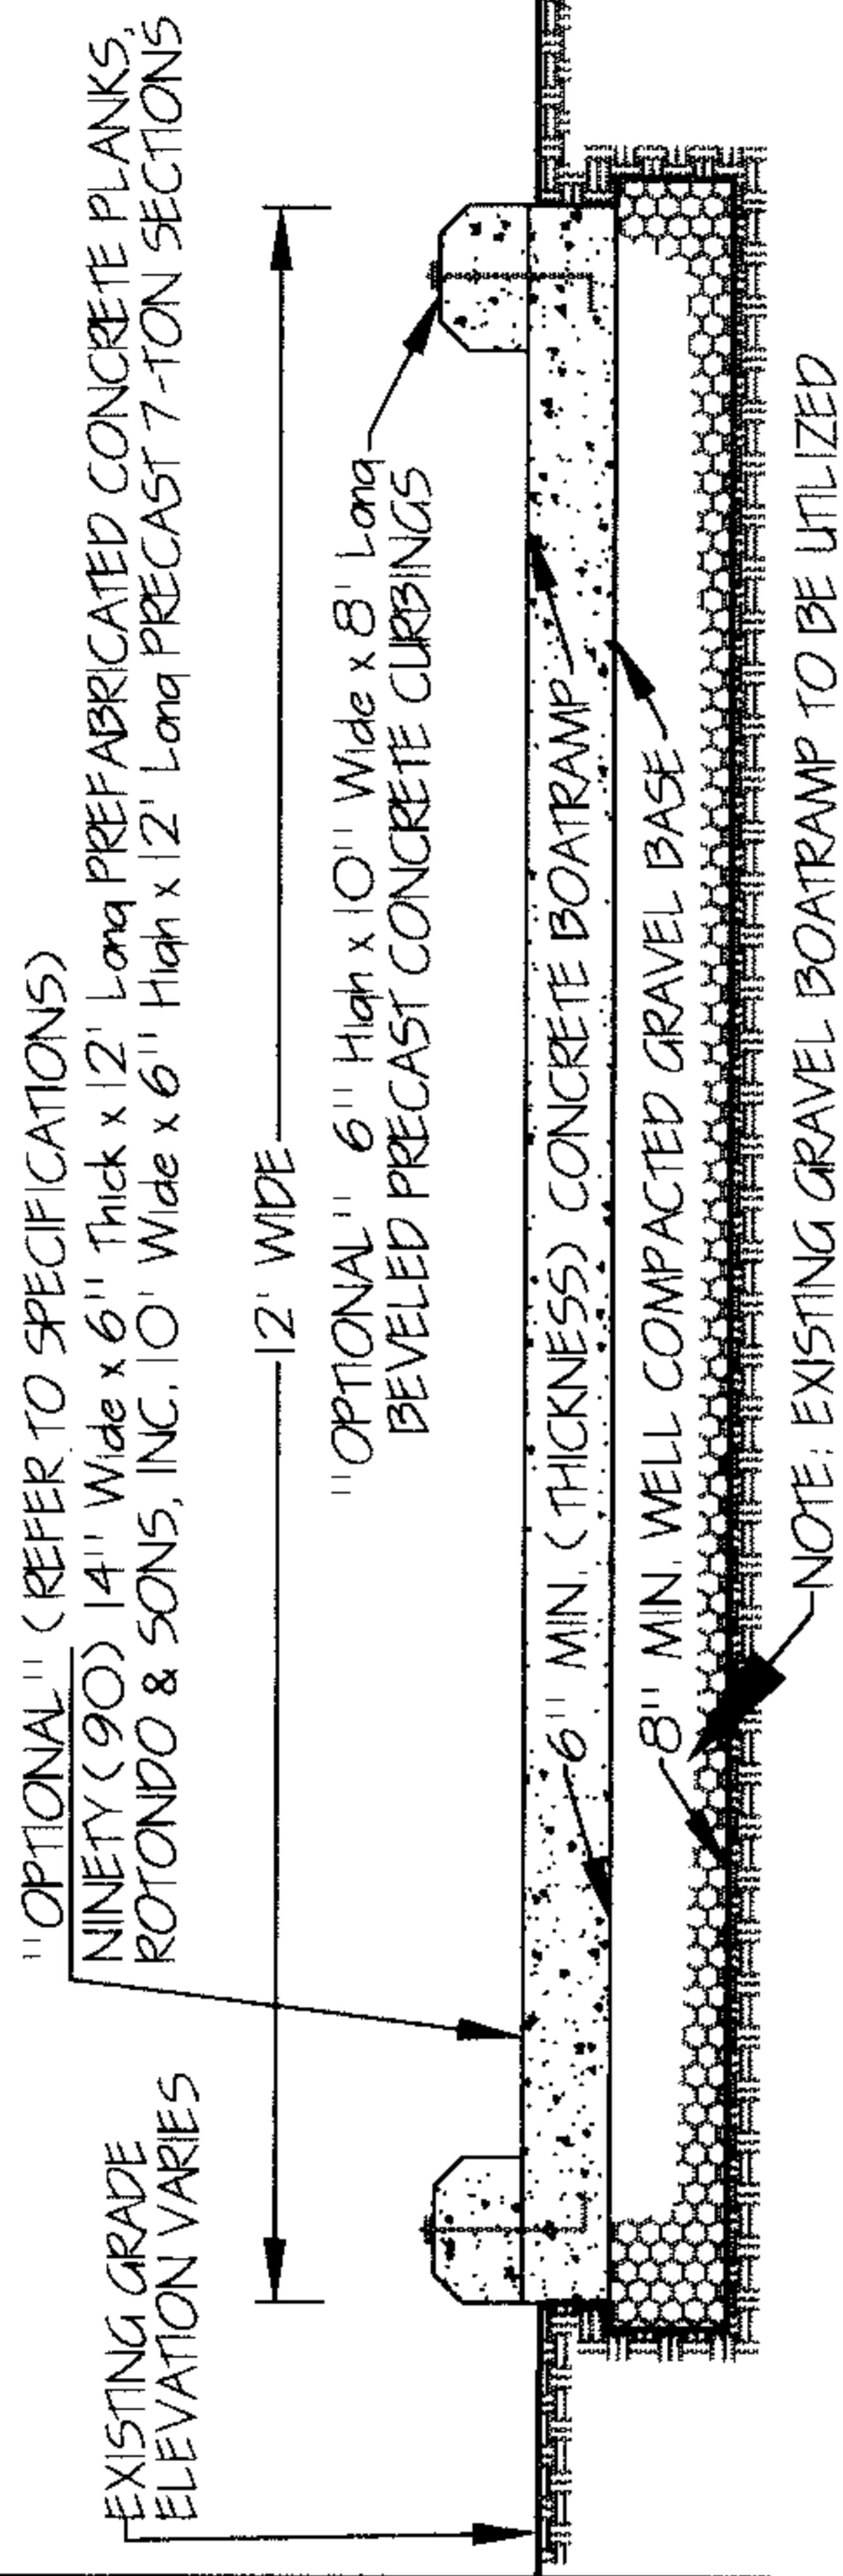 "OPTIONAL" (REFER TO SPECIFICATIONS)
NINETY (90) 14" Wide x 6" Thick x 12' Long PREFABRICATED CONCRETE PLANKS,
ROTONDO & SONS, INC. 10' Wide x 6" High x 12' Long PRECAST 7-TON SECTIONS
EXISTING GRADE
ELEVATION VARIES
12' WIDE
"OPTIONAL" 6" High x 10" Wide x 8' Long
BEVELED PRECAST CONCRETE CURBINGS
6" MIN. (THICKNESS) CONCRETE BOATRAMP
8" MIN. WELL COMPACTED GRAVEL BASE
NOTE: EXISTING GRAVEL BOATRAMP TO BE UTILIZED